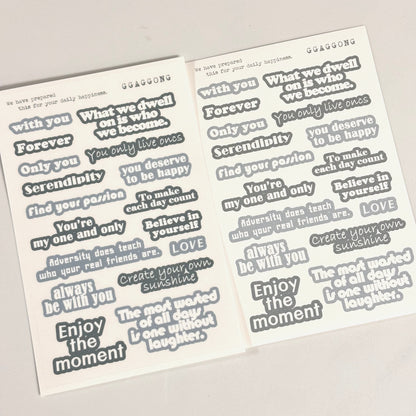 We have prepared
this for your daily happiness.
GGAGGONG
with you
What we dwell
on is who
we become.
Forever
You only live oncs
Only you
you deserve
to be happy
Serendipity
find your passion
To make
each day count
You're
my one and only
Believe in
yourself
Adversity does teach
who your real friends are.
LOVE
always
be with you
Create your own
sunshine
Enjoy
the
moment
The most wasted
of all days
is one without
laughter.
We have prepared
this for your daily happiness.
GGAGGONG
with you
What we dwell
on is who
we become.
Forever
You only live oncs
Only you
you deserve
to be happy
Serendipity
find your passion
To make
each day count
You're
my one and only
Believe in
yourself
Adversity does teach
who your real friends are.
LOVE
always
be with you
Create your own
sunshine
Enjoy
the
moment
The most wasted
of all days
is one without
laughter.